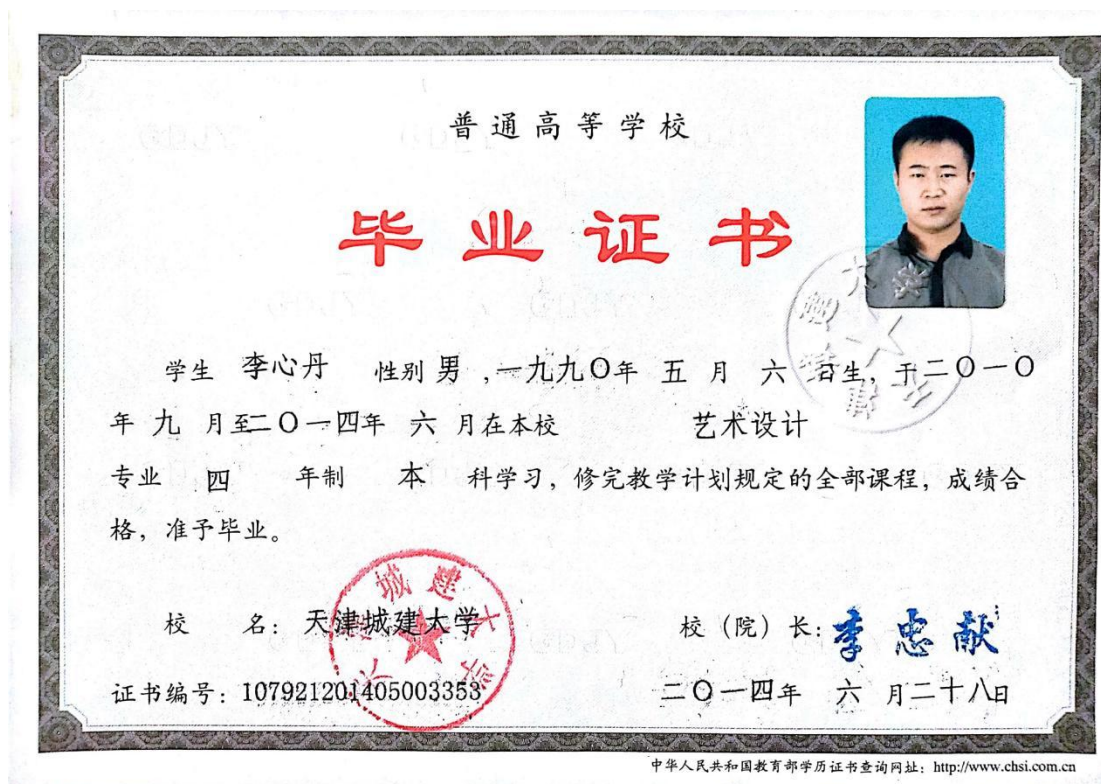 普通高等学校
毕业证书
学生 李心丹 性别 男 ,一九九〇年 五 月 六 日生，于二〇一〇
年 九 月至二〇一四年 六 月在本校 艺术设计
专业 四 年制 本 科学习，修完教学计划规定的全部课程，成绩合
格，准予毕业。
校 名：天津城建大学 校（院）长：李忠献
天津城建大学
证书编号：107921201405003353 二〇一四年 六 月二十八日
中华人民共和国教育部学历证书查询网址：http://www.chsi.com.cn